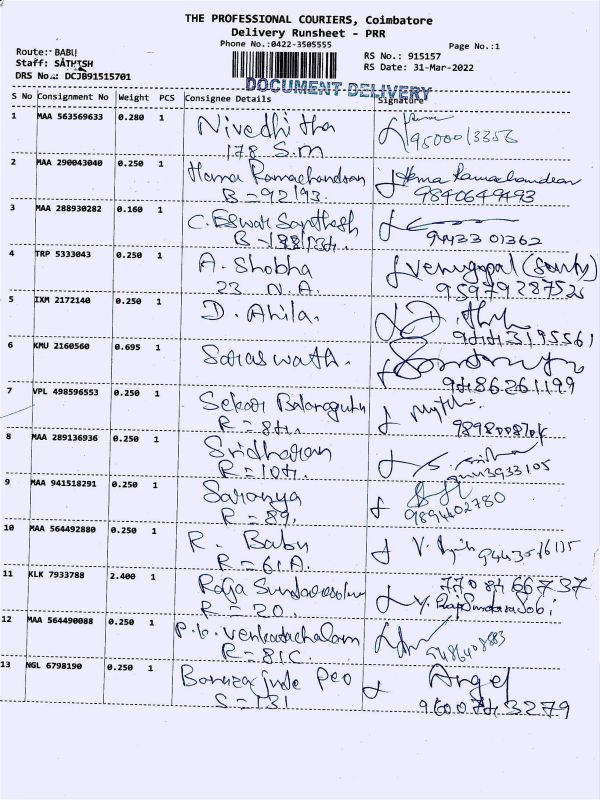 THE PROFESSIONAL COURIERS, Coimbatore
Delivery Runsheet - PRR
Phone No.:0422-3505555
Page No.:1
Route: BABU
Staff: SATHISH
DRS No.: DCJB91515701
RS No.: 915157
RS Date: 31-Mar-2022
DOCUMENT DELIVERY
S No Consignment No Weight PCS Consignee Details Signature
1 MAA 563569633 0.280 1 Nivedhitha
178 S.M 9500013356
2 MAA 290043040 0.250 1 Hema Ramachandran Hema Ramachandran
B = 92/93. 9840649493
3 MAA 288930282 0.160 1 C. Eswar Santhosh
9443301362
4 TRP 5333043 0.250 1 A. Shobha Venugopal
23 N.A.
5 IXM 2172140 0.250 1 D. Ahila.
9443195561
6 KMU 2160560 0.695 1 Saraswathi.
9486261199
7 VPL 498596553 0.250 1 Sekar
8 MAA 289136936 0.250 1 Sridharan
9 MAA 941518291 0.250 1 Saranya
R = 89. 9894402780
10 MAA 564492880 0.250 1 R. Babu
R = 61A.
11 KLK 7933788 2.400 1 Raja 7708466737
R = 20.
12 MAA 564490088 0.250 1 P.K. Venkatachalam
R = 81C
13 NGL 6798190 0.250 1 Angel
S = 131 9600743279